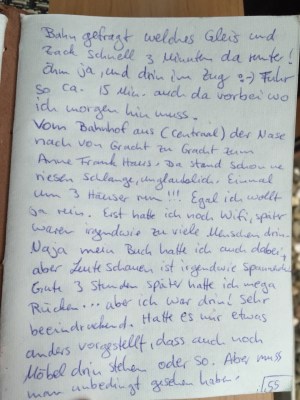 Bahn gefragt welches Gleis und
zack schnell 3 Minuten da runter!
Ähm ja, und drin im Zug :-) Fuhr
so ca. 15 Min. auch da vorbei wo
ich morgen hin muss.
Vom Bahnhof aus (Centraal) der Nase
nach von Gracht zu Gracht zum
Anne Frank Haus. Da stand schon ne
riesen Schlange, unglaublich. Einmal
um 3 Häuser rum!!! Egal ich wollt
ja rein. Erst hatte ich noch Wifi, später
waren irgendwie zu viele Menschen drin.
Naja mein Buch hatte ich auch dabei,
aber Leute schauen ist irgendwie spannender
Gute 3 Stunden später hatte ich mega
Rücken... aber ich war drin! Sehr
beeindruckend. Hatte es mir etwas
anders vorgestellt, dass auch noch
Möbel drin stehen oder so. Aber muss
man unbedingt gesehen haben.
55